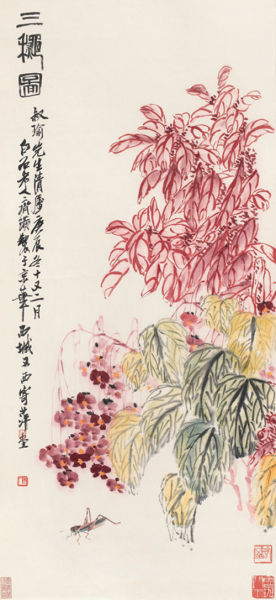 三秋圖
叔瑜先生清屬庚辰冬十又二月
白石老人齊璜製于京華西城且西寄萍堂